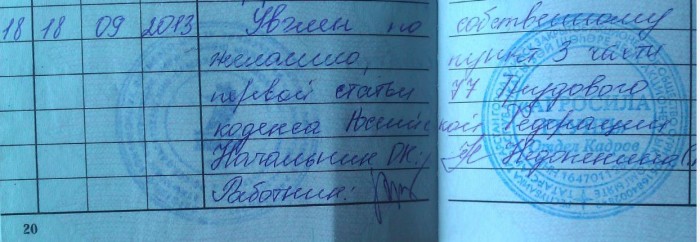 18 18 09 2013 Уволен по собственному
желанию, пункт 3 части
первой статьи 77 Трудового
кодекса Российской Федерации
Начальник ОК:
Работник:
АГРОСИЛА
Отдел Кадров
20